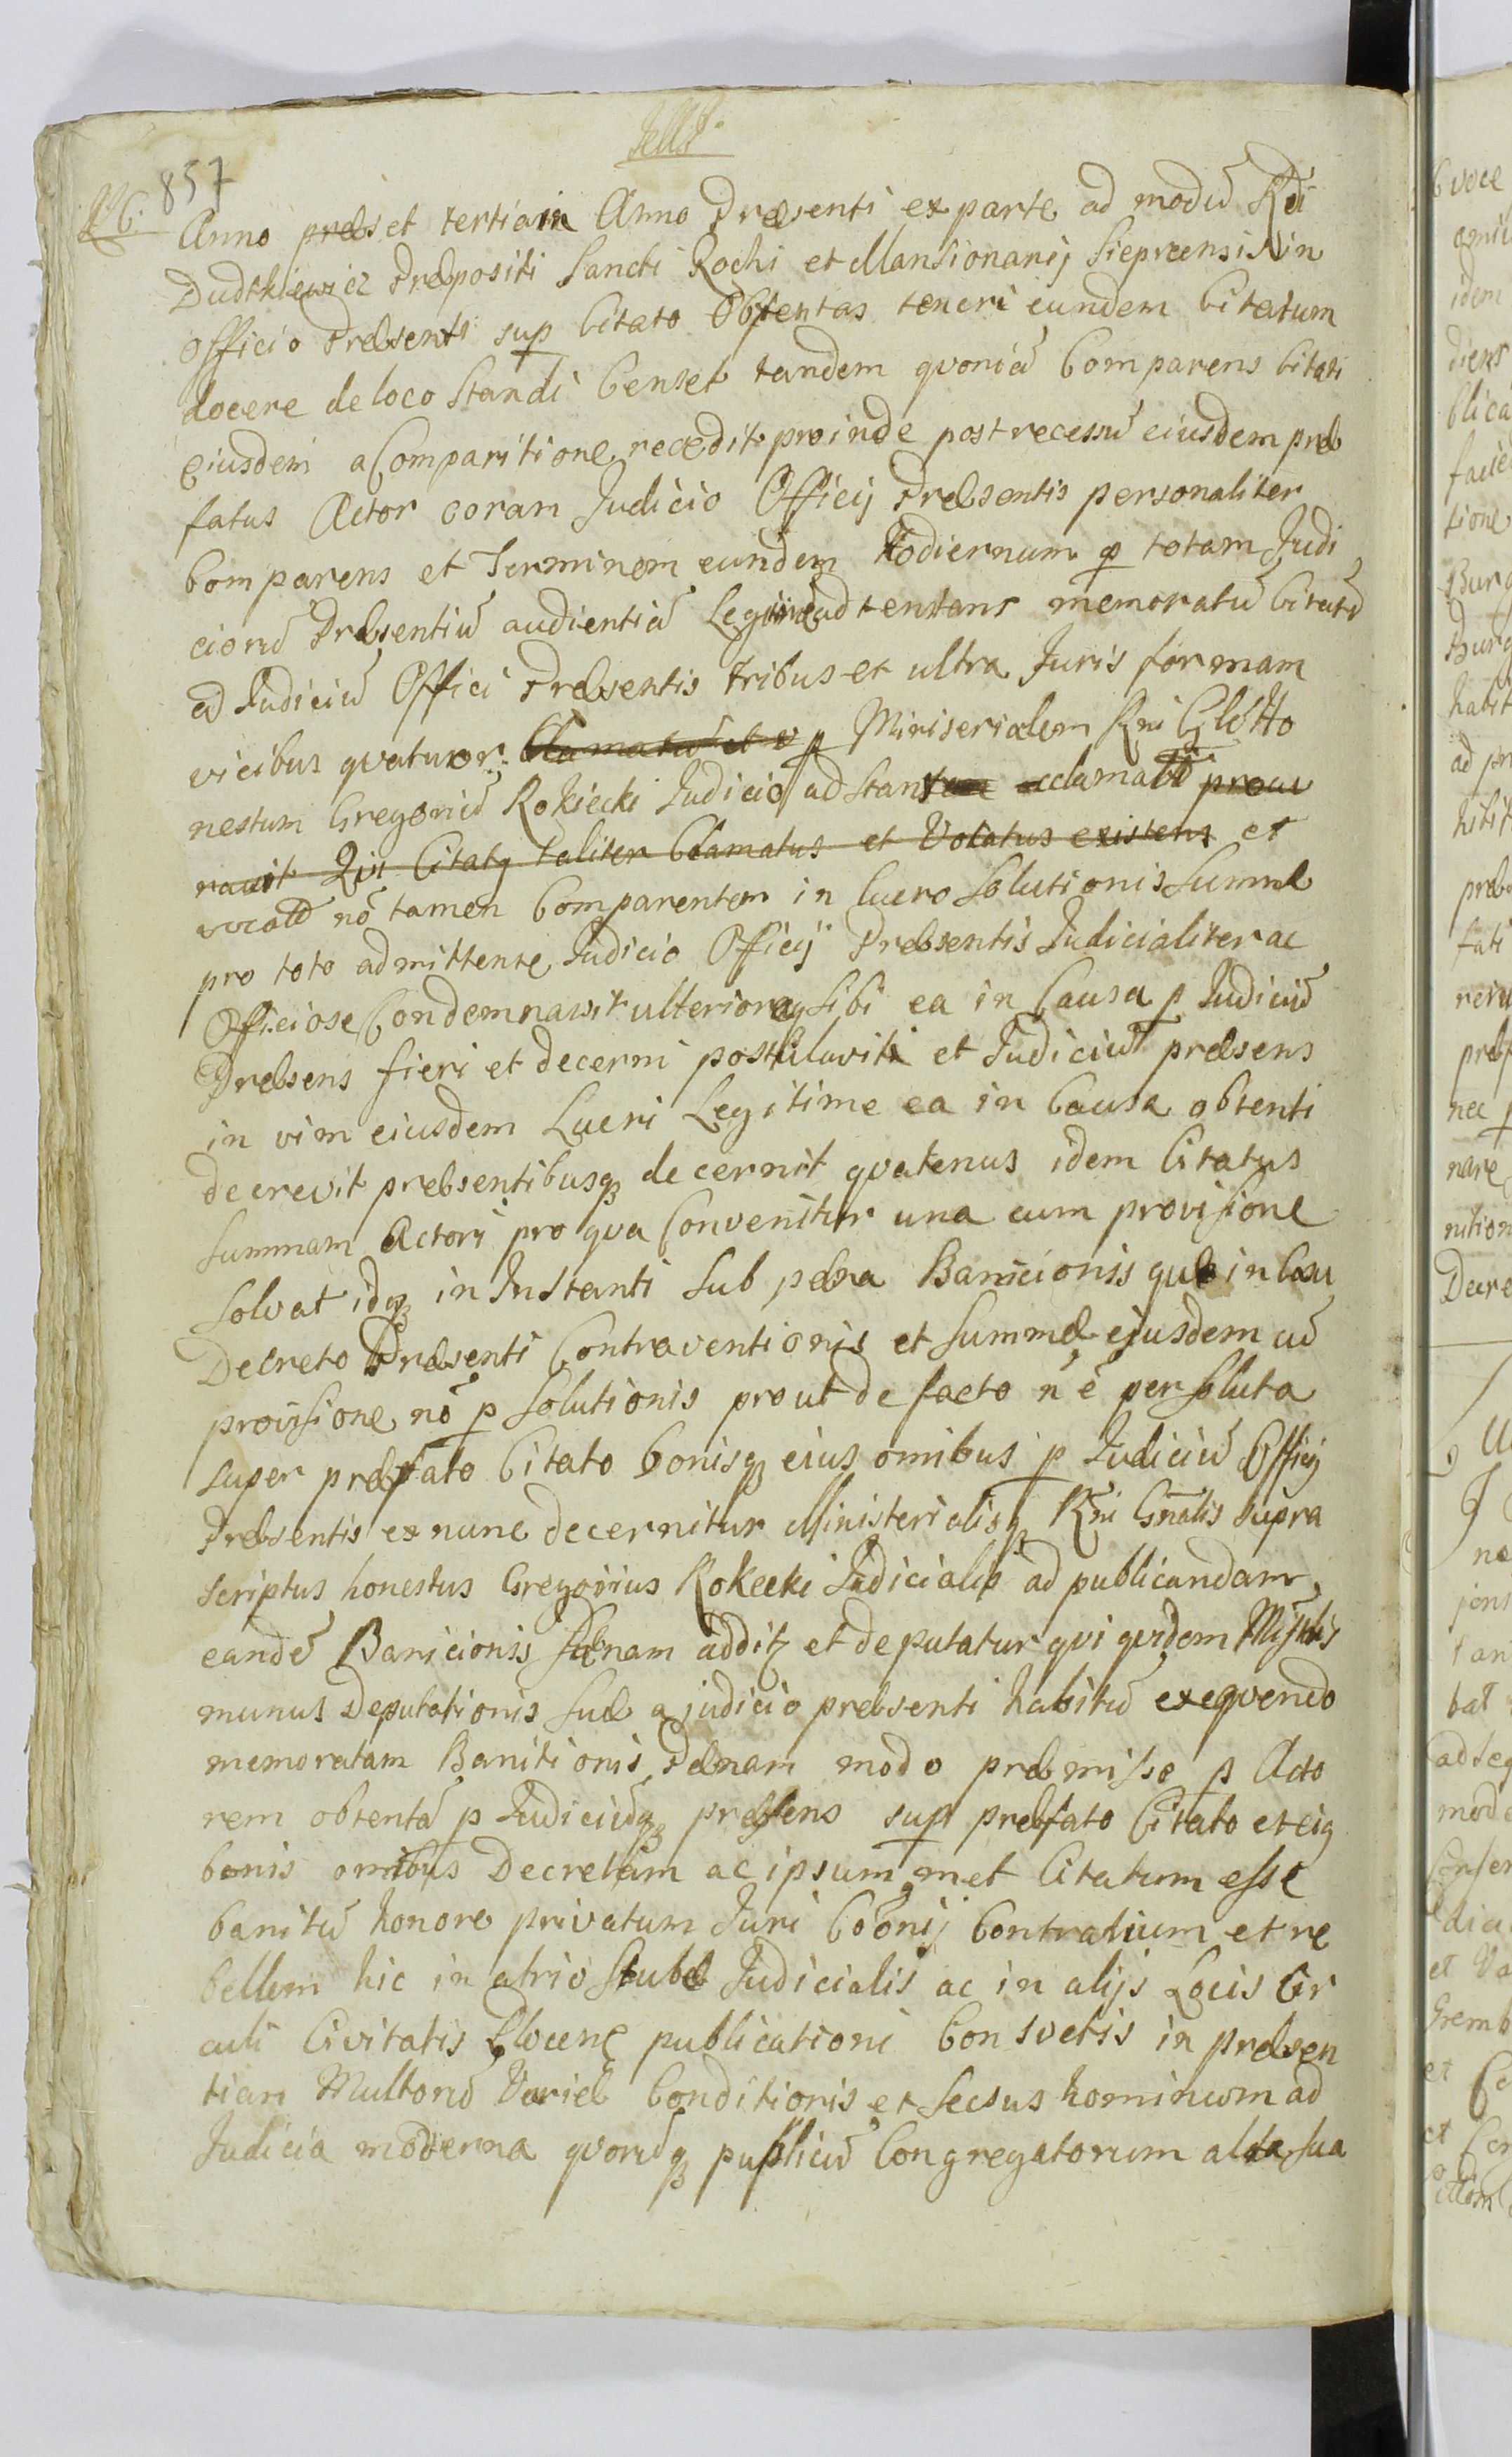 857
Anno præs et tertiam Anno Præsenti ex parte ad modũ Rdi
Dudtkiewicz Præpositi Sancti Rochi et Mansionarij Sieprcensis in
Officio Præsenti sup Citato Obtentas teneri eundem Citatum
docere de loco Standi Censet tandem qvoniã Comparens Citati
eiusdem a Comparitione recedit proinde post recessũ eiusdem præ
fatus Actor coram Judicio Officij Præsentis personaliter
Comparens et Terminem eundem Hodiernum p totam Judi
ciorũ Præsentiũ audientiã Legitime adtentans memoratũ Citatũ
ad Judiciũ Offici Præsentis tribus et ultra Juris formam
vicibus qvatuor Clamatũ et v p Miniserialem Rni Glē Ho
nestum Gregoriũ Rokiecki Judicio ad stantem acclamatũ procu
ravit Qui Citatq taliter Clamatus et Vocatus existens et
vocatũ nõ tamen Comparentem in lucro Solutionis Summæ
pro toto admittente Judicio Officij Præsentis Judicialiter ac
Officiose Condemnavit ulterioraq Sibi ea in Causa p Judiciũ
Præsens fieri et decerni postulavit et Judiciũ præsens
in vim eiusdem Lucri Legitime ea in Causa obtenti
decrevit præsentibusq decernit qvatenus idem Citatus
Summam Actori pro qva Convenitur una cum provisione
Solvat idq in Instanti Sub pæna Banicionis quæ in Casu
Decreto Præsenti Contraventionis et Summæ eiusdem cũ
provisione nõ p Solutionis prout de facto ñ ẽ persoluta
super præfato Citato bonisq eius omnibus p Judiciũ Officij
Præsentis ex nunc decernitur Ministerialisq Rni Gnalis Supra
scriptus honestus Gregorius Rokecki Judicialis ad publicandam
eandẽ Banicionis Pænam additq et deputatur qvi qvidem Mistlis
munus Deputationis Suæ a judicio præsenti habitũ exeqvendo
memoratam Banitionis Pænam modo præmisso p Acto
rem obtentã p Judiciũq præsens sup præfato Citato et eiq
bonis omibus Decretam ac ipsum met Citatum esse
banitũ honore privatum Juri Cõoni Contrarium et re
bellem hic in atrio Stubæ Judicialis ac in alijs Locis Cir
culi Civitatis Plocen publicationi Consvetis in præsen
tiam Multorũ Variæ Conditionis et Secsus hominum ad
Judicia moderna qvorũq publiciũ Congregatorum alta sua